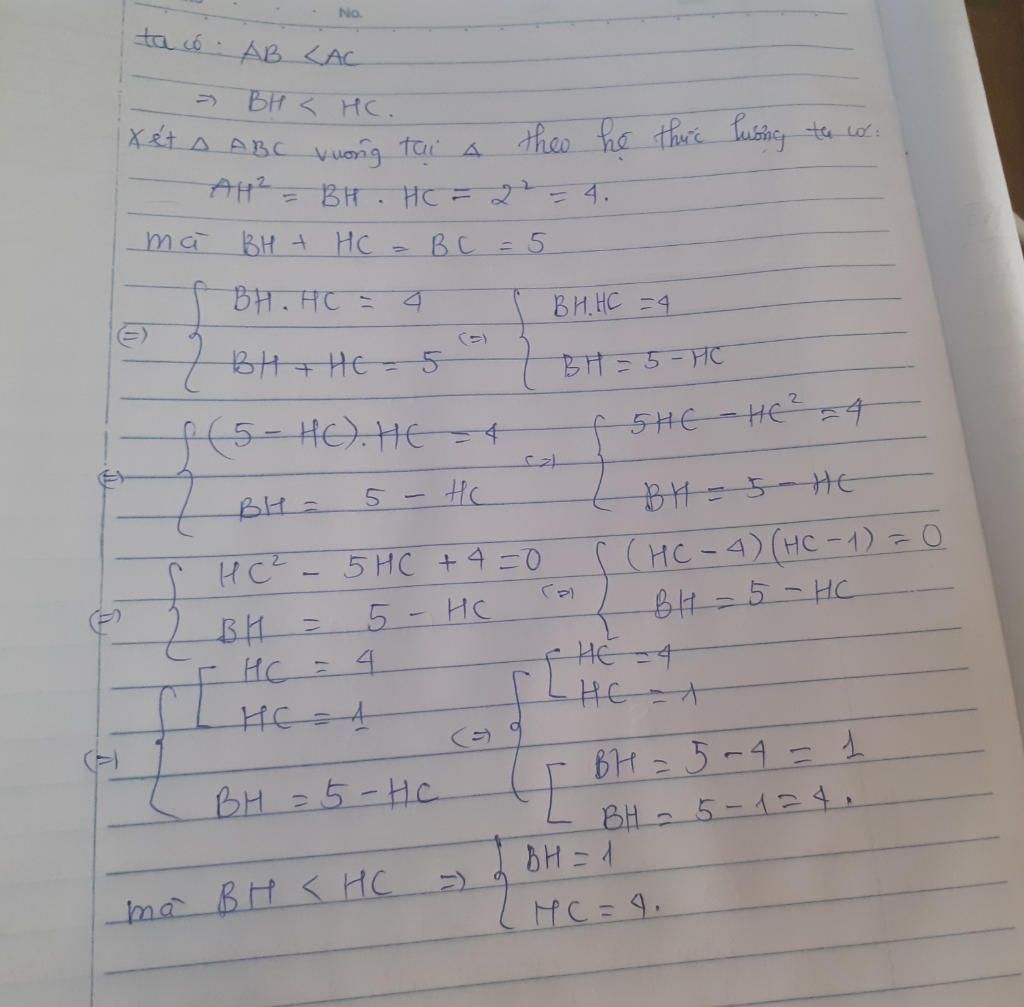 No.
ta có: AB < AC
=> BH < HC.
Xét Δ ABC vuông tại A theo hệ thức lượng ta có:
AH² = BH . HC = 2² = 4.
mà BH + HC = BC = 5
(=) { BH . HC = 4 (=) { BH.HC = 4
BH + HC = 5 BH = 5 - HC
(=) { (5 - HC) . HC = 4 (=) { 5HC - HC² = 4
BH = 5 - HC BH = 5 - HC
(=) { HC² - 5HC + 4 = 0 (=) { (HC - 4)(HC - 1) = 0
BH = 5 - HC BH = 5 - HC
(=) { [ HC = 4 (=) { [ HC = 4
HC = 1 HC = 1
BH = 5 - HC [ BH = 5 - 4 = 1
BH = 5 - 1 = 4.
mà BH < HC => { BH = 1
HC = 4.